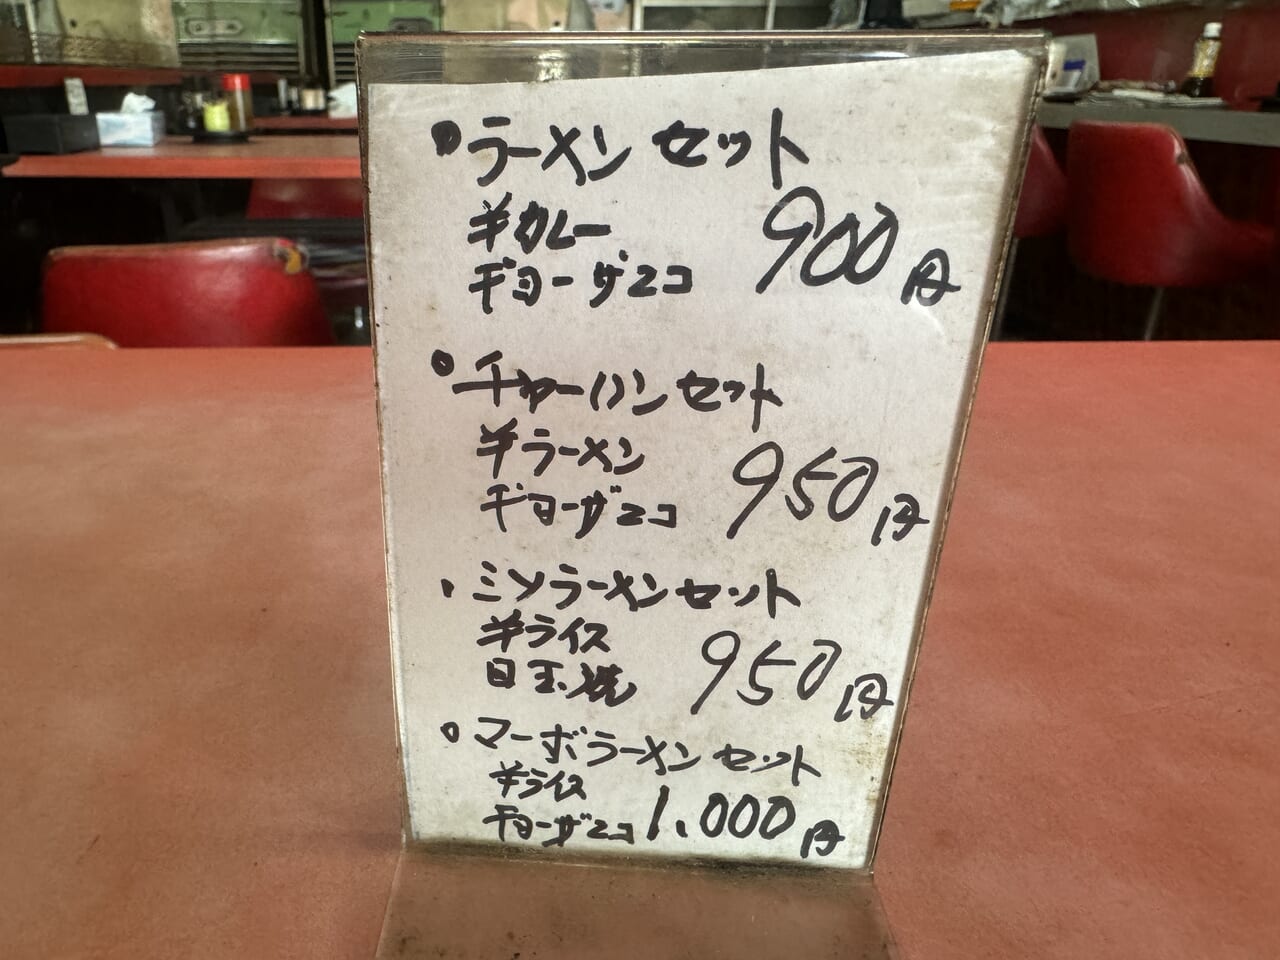 ・ラーメンセット
半カレー
ギョーザ2コ
900円
・チャーハンセット
半ラーメン
ギョーザ2コ
950円
・ミソラーメンセット
半ライス
目玉焼
950円
・マーボラーメンセット
半ライス
ギョーザ2コ
1.000円